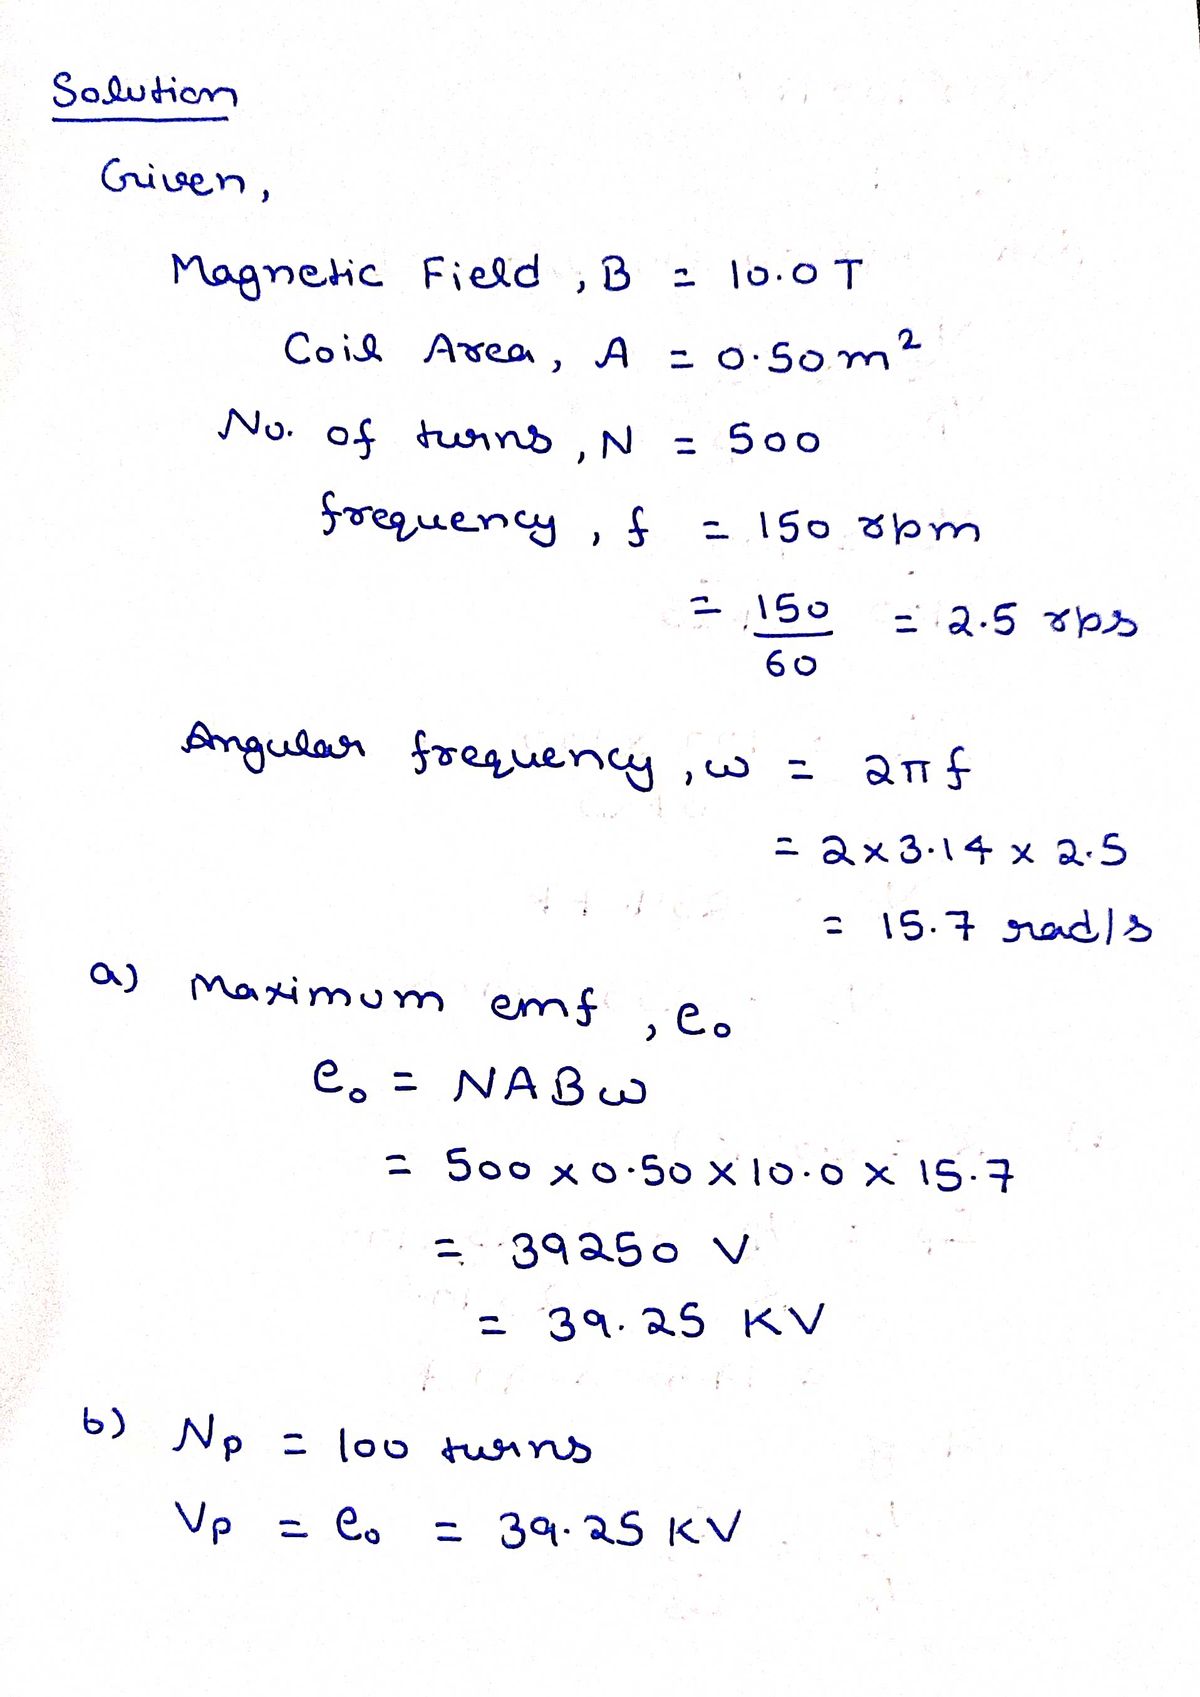 Solution
Given,
Magnetic Field, B = 10.0 T
Coil Area, A = 0.50 m²
No. of turns, N = 500
frequency, f = 150 rpm
= 150/60 = 2.5 rps
Angular frequency, ω = 2πf
= 2 × 3.14 × 2.5
= 15.7 rad/s
a) Maximum emf, e₀
e₀ = NABω
= 500 × 0.50 × 10.0 × 15.7
= 39250 V
= 39.25 KV
b) Np = 100 turns
Vp = e₀ = 39.25 KV